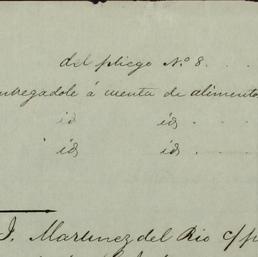 del pliego Nº 8. . . .
ntregadole á cuenta de alimento
id id . . . .
id id . . . .
J. Martinez del Rio c/p